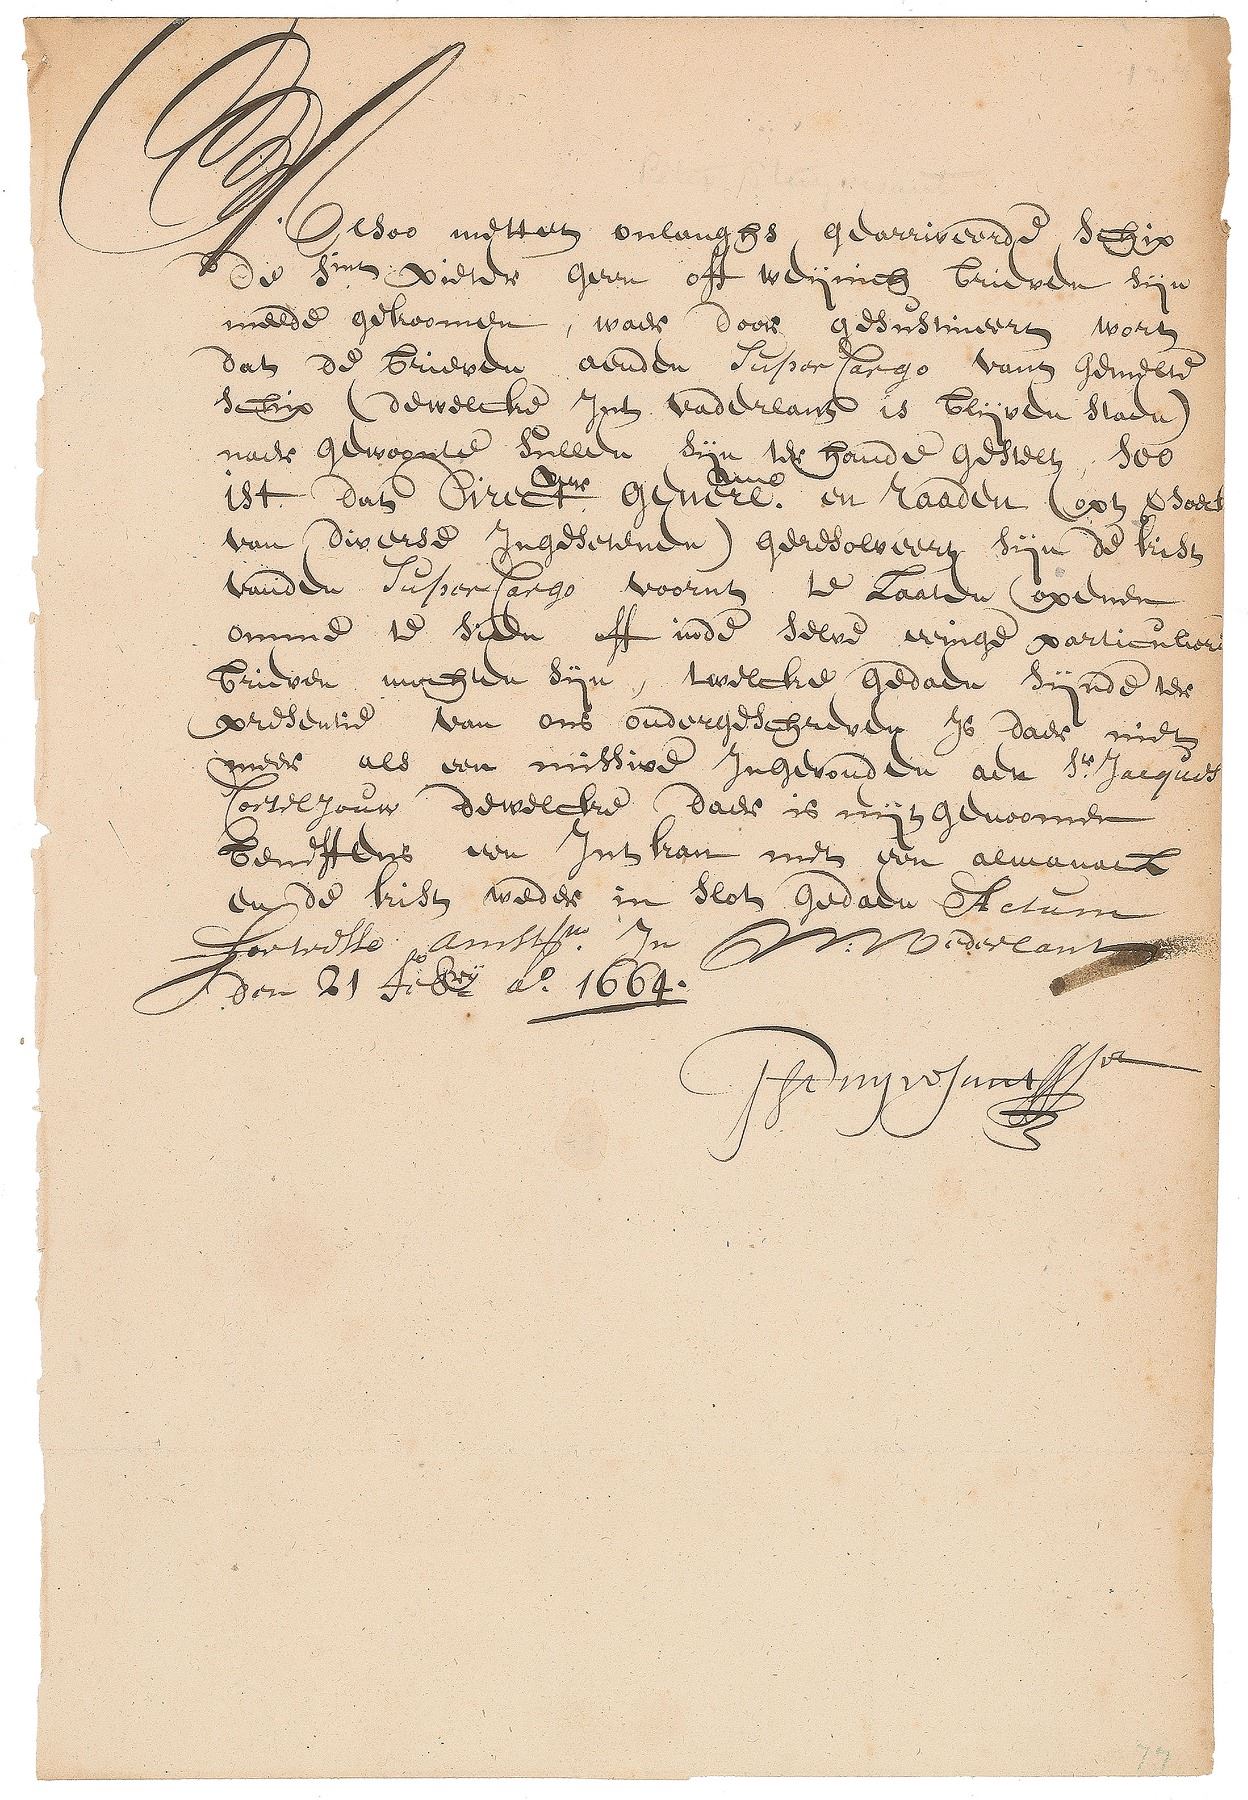 Alsoo mettet onlanghs gearriveerde Schip
de Sint Pieter geen off weijnich brieven sijn
meede gekoomen, waer door gesustineert wort
dat de brieven aenden Super Cargo vant gemelte
Schip (dewelcke Int vaderlant is blijven staen)
naer gewoonte sullen sijn ter hande gestelt, soo
ist dat Directr. Generl. en Raaden (opt
van diverse Ingesetenen) geresolveert sijn de kist
vanden Super Cargo voornt te Laaten openen
omme te sien off inde selve eenige particuliere
brieven mochten sijn, twelcke gedaen sijnde ter
presentie van ons ondergeschreven Is daer niet
meer als een missive Ingevonden aen Sr. Jacques
Corteljouw dewelcke daer is uijtgenoomen
beneffens een Intkan met een almanack
en de kist weder in slot gedaen Actum
Fortresse Amst. In N: Nederlant
den 21 feb ao. 1664.
P Stuyvesant
77